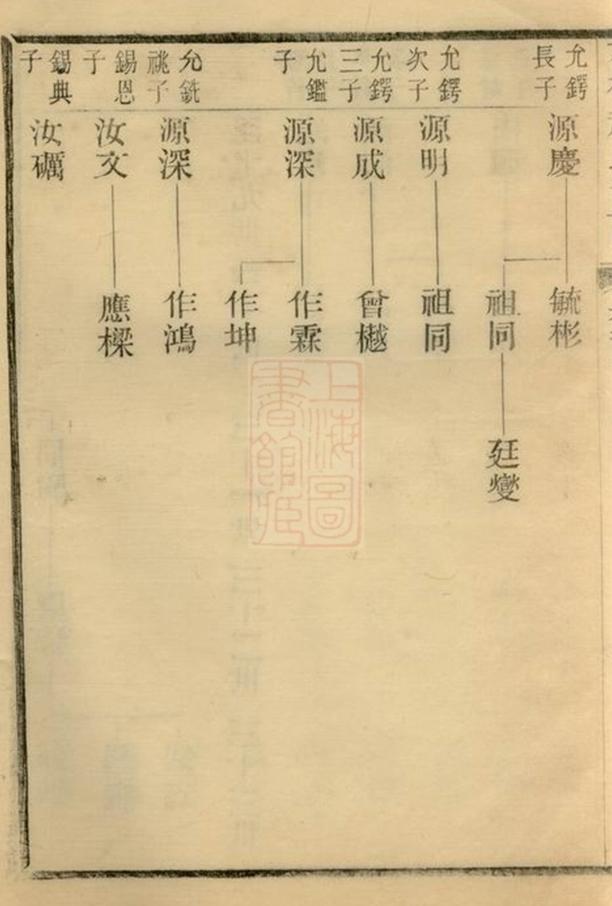 允鍔長子
源慶
毓彬
祖同
廷燮
允鍔次子
源明
祖同
允鍔三子
源成
曾樾
允鑑子
源深
作霖
作坤
允銑祧子
源深
作鴻
錫恩子
汝文
應樑
錫典子
汝礪
上海圖書館藏